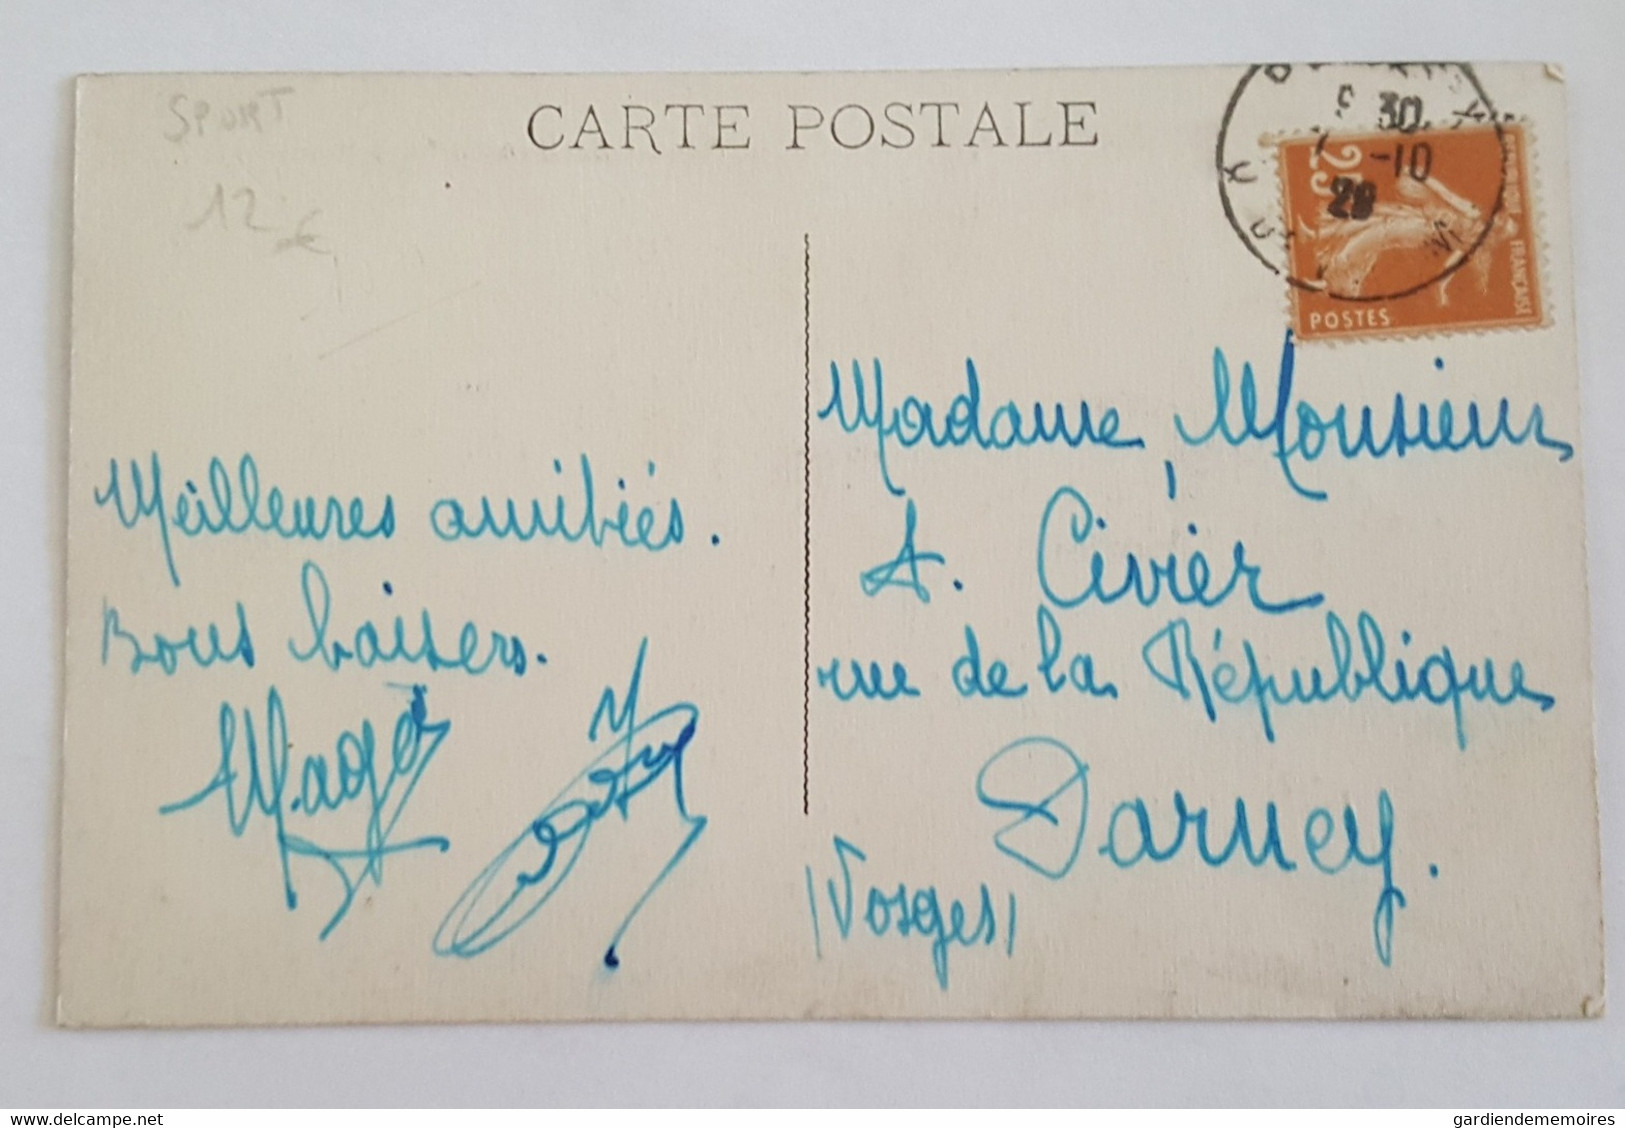 SPORT
12 €
CARTE POSTALE
30
-10
28
25
FRANÇAISE
POSTES
Meilleures amitiés.
Bons baisers.
Madame, Monsieur
A. Civier
rue de la République
Darney.
(Vosges)
delcampe.net
gardiendememoires